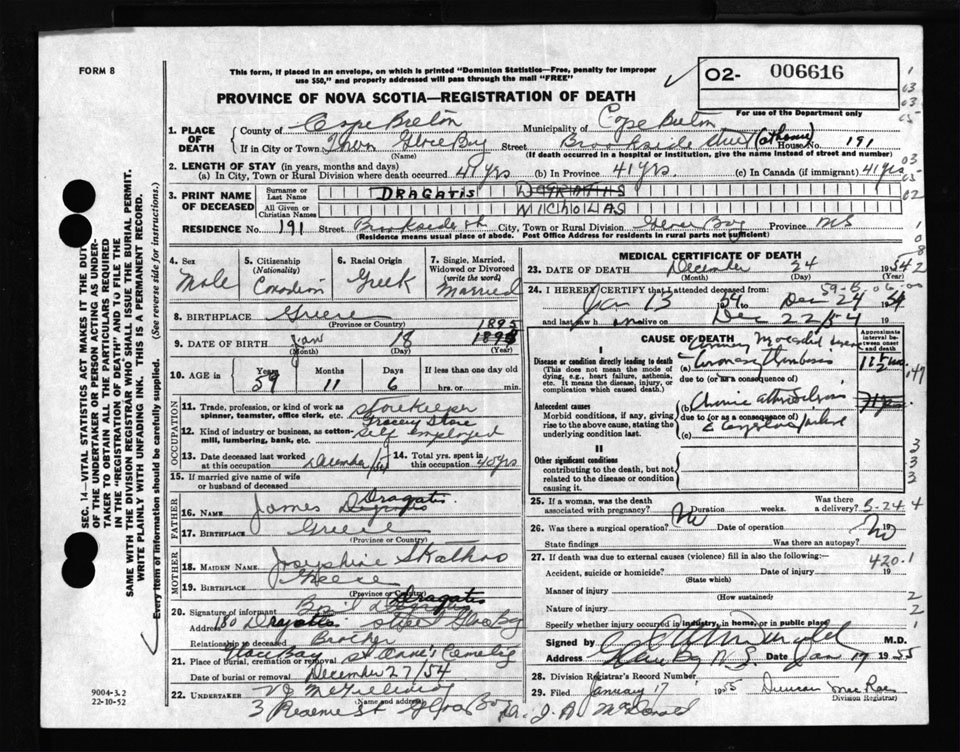 FORM 8
This form, if placed in an envelope, on which is printed "Dominion Statistics—Free, penalty for improper
use $50," and properly addressed will pass through the mail "FREE"
O2- 006616
PROVINCE OF NOVA SCOTIA—REGISTRATION OF DEATH
For use of the Department only
1. PLACE OF DEATH
County of Cape Breton Municipality of Cape Breton
If in City or Town Town Glace Bay Street Brookside Street (at home) House No. 191
(Name) (If death occurred in a hospital or institution, give the name instead of street and number)
2. LENGTH OF STAY (in years, months and days)
(a) In City, Town or Rural Division where death occurred 41 yrs (b) In Province 41 yrs. (c) In Canada (if immigrant) 41 yrs
3. PRINT NAME OF DECEASED
Surname or Last Name DRAGATIS
All Given or Christian Names NICHOLAS
RESIDENCE No. 191 Street Brookside St City, Town or Rural Division Glace Bay Province NS
(Residence means usual place of abode. Post Office Address for residents in rural parts not sufficient)
SEC. 14—VITAL STATISTICS ACT MAKES IT THE DUTY
OF THE UNDERTAKER OR PERSON ACTING AS UNDER-
TAKER TO OBTAIN ALL THE PARTICULARS REQUIRED
IN THE "REGISTRATION OF DEATH" AND TO FILE THE
SAME WITH THE DIVISION REGISTRAR WHO SHALL ISSUE THE BURIAL PERMIT.
WRITE PLAINLY WITH UNFADING INK. THIS IS A PERMANENT RECORD.
Every item of information should be carefully supplied. (See reverse side for instructions.)
4. Sex Male
5. Citizenship (Nationality) Canadian
6. Racial Origin Greek
7. Single, Married, Widowed or Divorced (write the word) Married
8. BIRTHPLACE Greece
(Province or Country)
9. DATE OF BIRTH Jan 18 1895
(Month) (Day) (Year)
10. AGE in Years 59 Months 11 Days 6 If less than one day old hrs. or min.
OCCUPATION
11. Trade, profession, or kind of work as spinner, teamster, office clerk, etc. Storekeeper
12. Kind of industry or business, as cotton-mill, lumbering, bank, etc. Grocery Store
Self employed
13. Date deceased last worked at this occupation December /54 14. Total yrs. spent in this occupation 40 yrs
15. If married give name of wife or husband of deceased
FATHER
16. Name James Dragatis
17. Birthplace Greece
(Province or Country)
MOTHER
18. Maiden Name Josephine
19. Birthplace Greece
(Province or Country)
20. Signature of informant Basil Dragatis
Address 180 Street Glace Bay
Relationship to deceased Brother
21. Place of burial, cremation or removal Glace Bay St Anne's Cemetery
Date of burial or removal December 27/54
22. UNDERTAKER V J McGillivray
(Name and address)
3 St Glace Bay
9004-3.2
22-10-52
MEDICAL CERTIFICATE OF DEATH
23. DATE OF DEATH December 24 1954
(Month) (Day) (Year)
24. I HEREBY CERTIFY that I attended deceased from:
Jan 13 54 to Dec 24 1954
and last saw h im alive on Dec 22/54 19
CAUSE OF DEATH
Approximate interval between onset and death
I
Disease or condition directly leading to death
(This does not mean the mode of dying, e.g., heart failure, asthenia, etc. It means the disease, injury, or complication which caused death.)
(a) Coronary thrombosis
due to (or as a consequence of)
Antecedent causes
Morbid conditions, if any, giving rise to the above cause, stating the underlying condition last.
(b)
due to (or as a consequence of)
(c)
II
Other significant conditions
contributing to the death, but not related to the disease or condition causing it.
25. If a woman, was the death associated with pregnancy? Duration weeks. Was there a delivery?
26. Was there a surgical operation? No Date of operation 19
State findings Was there an autopsy? No
27. If death was due to external causes (violence) fill in also the following:—
Accident, suicide or homicide? Date of injury 19
(State which)
420.1
Manner of injury
(How sustained)
Nature of injury
Specify whether injury occurred in industry, in home, or in public place
Signed by M.D.
Address Glace Bay N.S. Date Jan 17 1955
28. Division Registrar's Record Number
29. Filed January 17 1955 Duncan MacRae
Division Registrar
Dr. J. A. McDonald